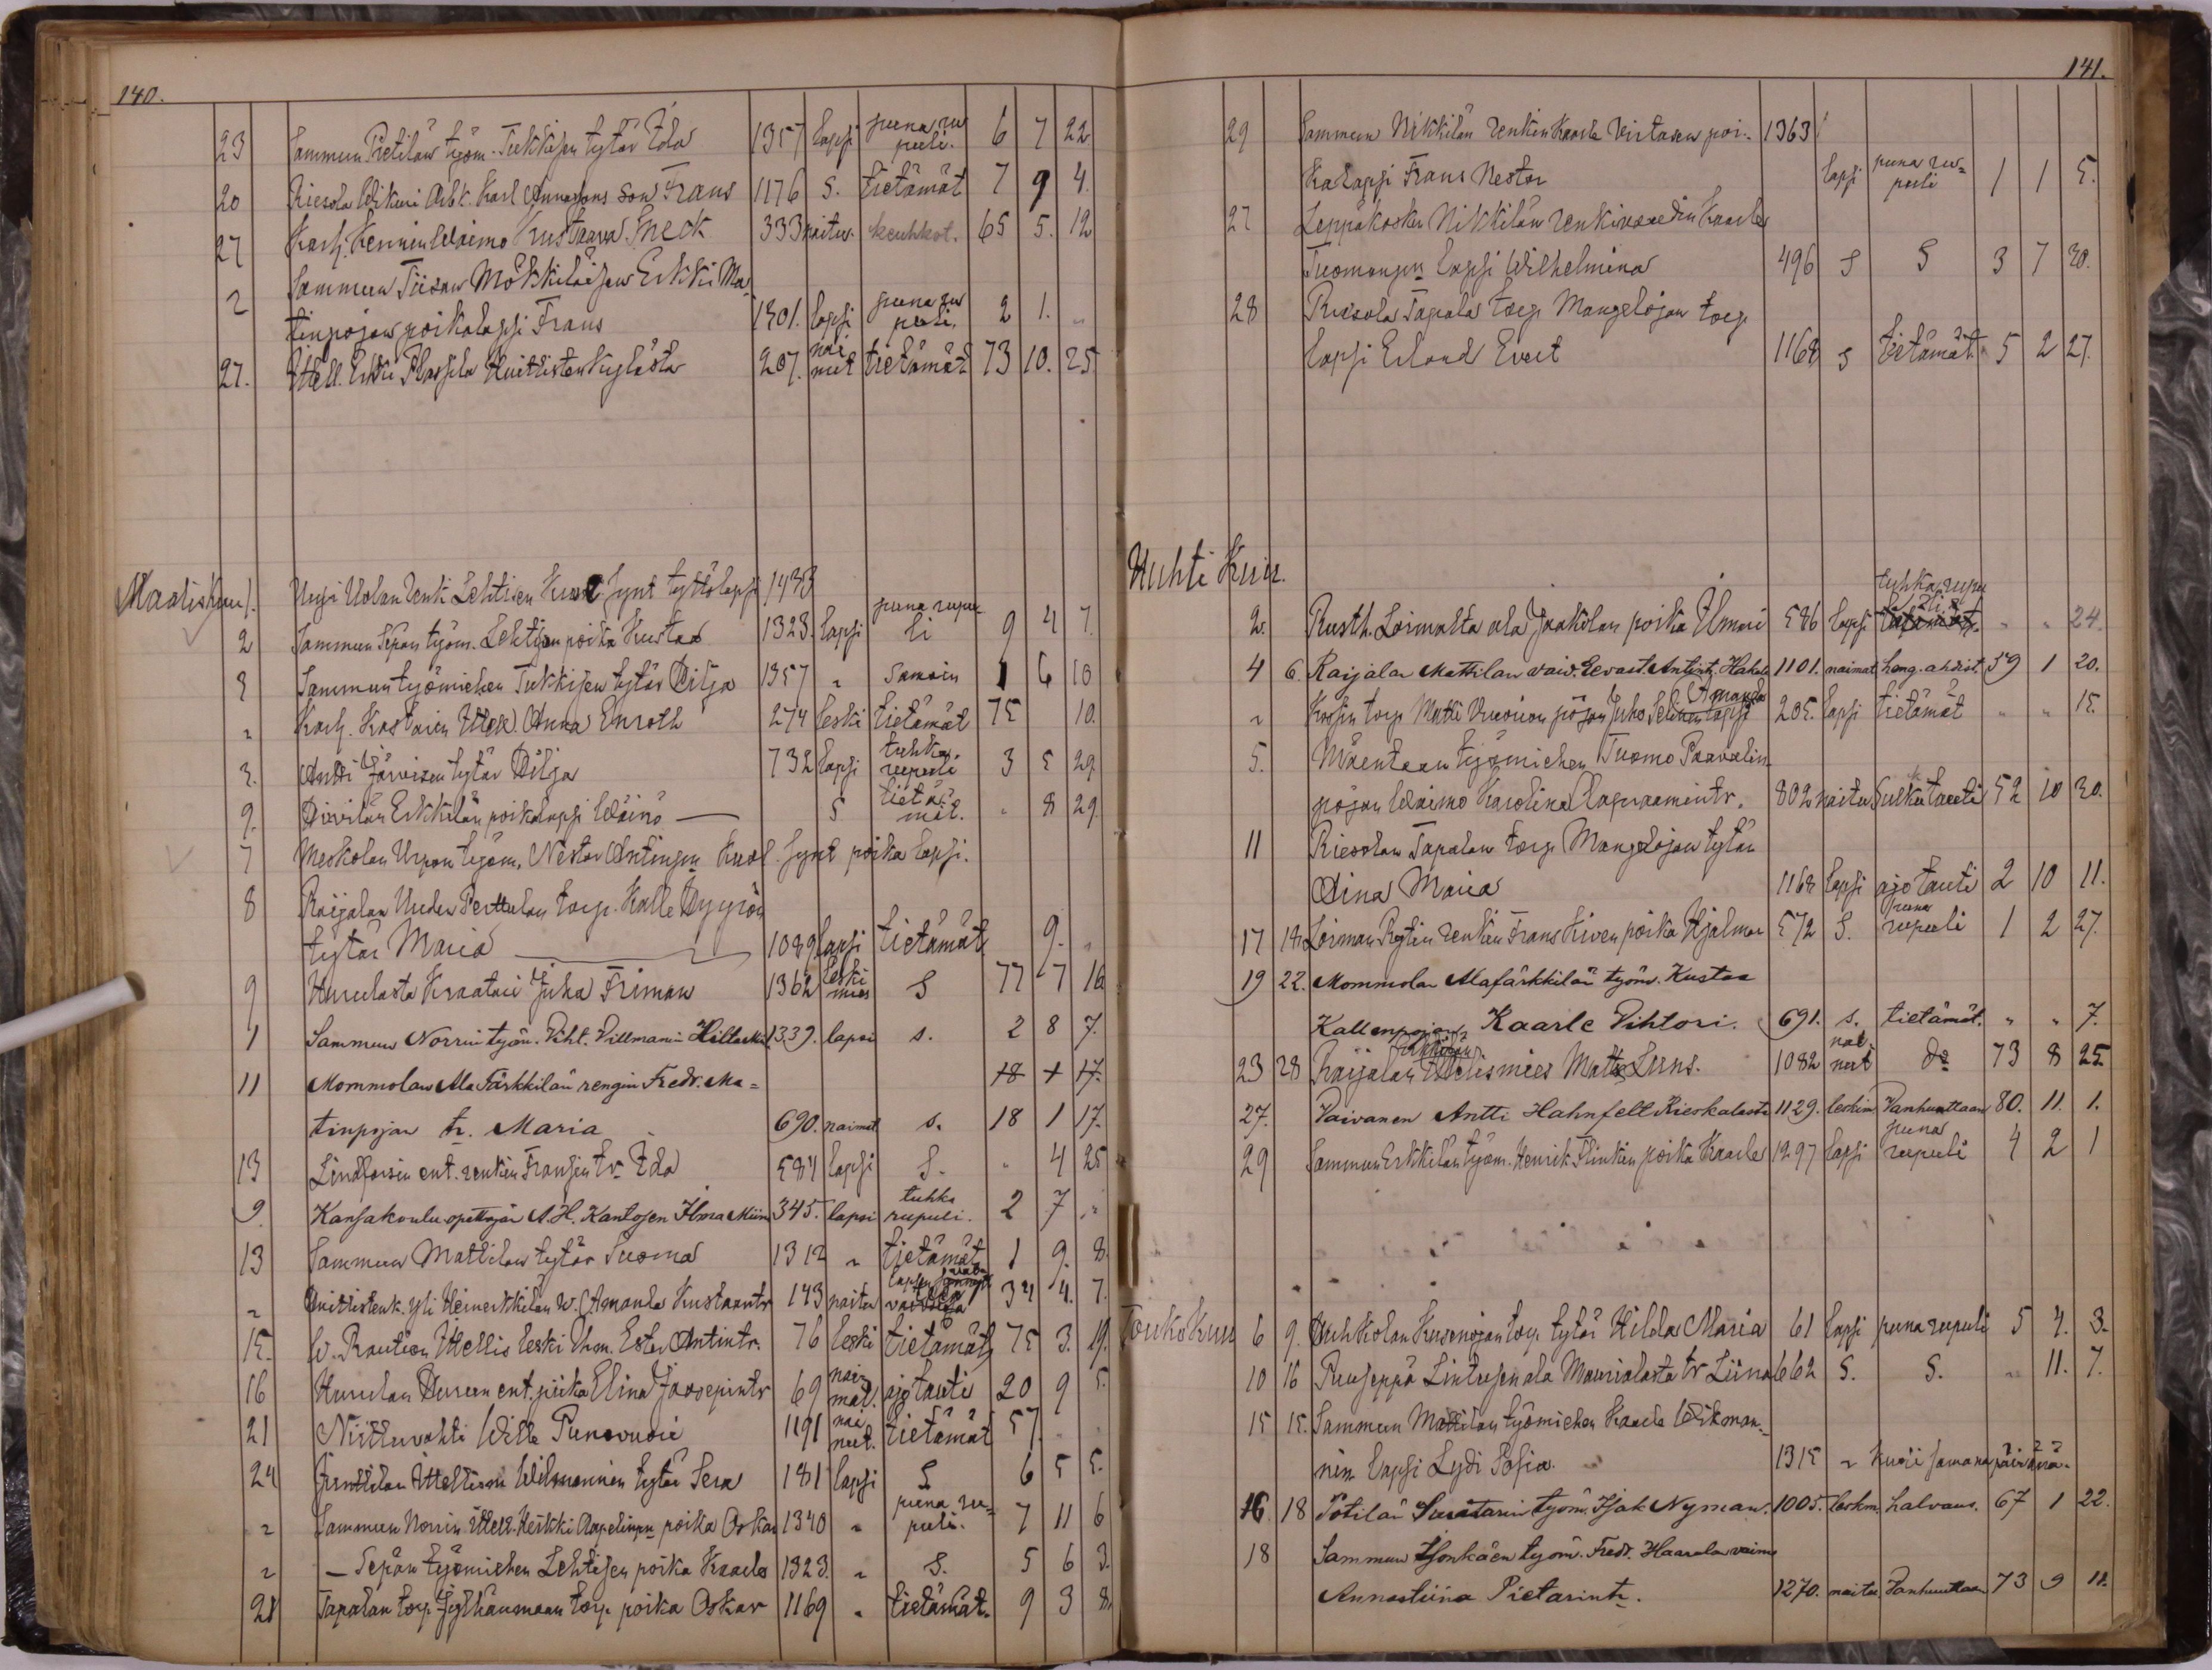 140.
23 Sammun Pietilän työm. Tukkisen tytär Ida 1357 lapsi puna ru puli. 6 7 22
20 Riesola Wikuri Arbk. Karl Annasons son Frans 1176 S. tietämät 7 9 4.
27 Karh. waimo Kustaava Sneck 333 naitu. keuhkot. 65 5. 12
2 Sammun Tiisan Mökkiläisen Erkki Ma
tinpojan poikalapsi Frans 1301. lapsi puna ru puli. 2 1. "
27. Itsell. Erkki Plassila Huittisten kylästä 207. nai mat tietämät 73 10. 25
Maaliskuu 1. Uolan Renki Lehtisen kuol. synt tyttölapsi 1433
2 Sammun Sepän työm. Lehtisen poika Kustaa 1323. lapsi puna rupu li 9 4 7.
3 Sammun työmiehen Tukkisen tytär Dilja 1357 " Samoin 1 6 10
" Karh. Itsell. Anna Enroth 274 leski tietämät 75 10.
3. Antti Järvisen tytär Dilja 732 lapsi tuhka rupuli 3 5 29.
9. Erkkilän poikalapsi Wäinö — S tietä mät. " 8 29.
7 Meskolan Urpon työm. Nestor Antinpn kuol. synt poika lapsi.
8 Raijalan Uuden Perttulan torp. Kalle
tytär Maria 1089 lapsi tietämät 9. "
9 Huruulasta Kraatari Juha Friman 1362 leski mies S 77 7 16
1 Sammun Norrin työm. Viht. Villmanin Hilla 1339. lapsi s. 2 8 7.
11 Mommolan Ala Färkkilän rengin Fredr. Ma= 18 1 17.
tinpojan tr. Maria 690. naimat s. 18 1 17.
13 Lindforsin ent. renkin Fransin tr Ida 584 lapsi S. " 4 25
9. Kansakoulu opettajan A. H. Kantosen Ilma Miin 345. lapsi tuhka rupuli. 2 7 "
13 Sammun Mattilan tytär Suoma 1312 " tietämät 1 9. 8.
" Huittistenk. Yli Heinerkkilän w. Amanda Kustaantr 143 naitu lapsen 34 4. 7.
15. W. Raution Itsellis leski Vhm. Ester Antintr. 76 leski tietämät 75 3. 19.
16 Huruulan ent. piika Elina Joosepintr 69 nai mat. ajotauti 20 9 5.
21 Niittuvahti Wille Punavuori 1191 nai mat. tietämät 57.
24 Itsellisen Wilmannin tytär Sera 181 lapsi S 6 5 5.
" Sammun Norrin Itsell. Heikki Aapelinpn poika Oskar 1340 " puna ru= puli. 7 11 6
" — Sepän työmiehen Lehtisen poika Kaarle 1323. " S. 5 6 3.
28 Tapalan torp. torp poika Oskar 1169 " tietämät. 9 3 8.
141.
29 Sammun Nikkilän renkin Kaarle Virtasen poi- 1363
kalapsi Frans Nestor lapsi puna ru= puli 1 1 5.
27 Leppäkosken Nikkilän renkivoudin Kaarle
Tuomanpn lapsi Wilhelmina 496 S S 3 7 20.
28 Riesola Tapala torp Mangelojan torp
lapsi Erland Evert 1168 S tietämät 5 2 27.
Huhti Kuu.
2. Rusth. Loimalta ala Jaakolan poika Ilmari 586 lapsi tuhka rupu li tietämät. " " 24.
4 6. Raijalan Mattilan vaiv. Eevast. Antintr. Hakala 1101. naimat heng. ahdist 59 1 20.
" torp Matti Vuorion pojan Juho Selinin lapsi Amanda 205. lapsi tietämät " " 15.
5. Mäentaan työmiehen Tuomo Paavalin
pojan Waimo Karolina 802 naitu Sulkutauti 52 10 30.
11 Riesolan Tapalan torp Mangelojan tytär
Aina Maria 1168 lapsi ajotauti 2 10 11.
17 18. Loiman renkin Frans Kiven poika Hjalmar 572 S. puna rupuli 1 2 27.
19 22. Mommolan Alafärkkilän työm. Kustaa
Kallenpojan Kaarle Vihtori. 691. s. tietämät. " " 7.
23 28 Raijalan Itsellismies Matts Luns. 1082 nai. nut do 73 8 25.
27. Vaivanen Antti Hahnfelt Rieskalasta 1129. leskim Vanhuuttaan 80. 11. 1.
29 Sammun Erkkilän työm. Henrik Flinkin poika Kaarle 1297 lapsi puna rupuli 4 2 1
Toukokuu 6 9. Huhkolan Kusenojan torp tytär Hilda Maria 61 lapsi puna rupuli 5 4. 3.
10 16 Ruuseppä Lintusen ala Maurialasta tr Liina 662 S. S. " 11. 7.
15 15. Sammun Mattilan työmiehen Kaarle Wikman-
nin lapsi Lydi Sofia 1315 " kuoli samana päivänä.
16 18 Potilän työm. Isak Nyman. 1005. leskm. halvaus. 67 1 22.
18 Sammun työm. Fredr. Haaralan vaimo
Annastiina Pietarintr. 1270. naitu. Vanhuuttaan 73 9 11.